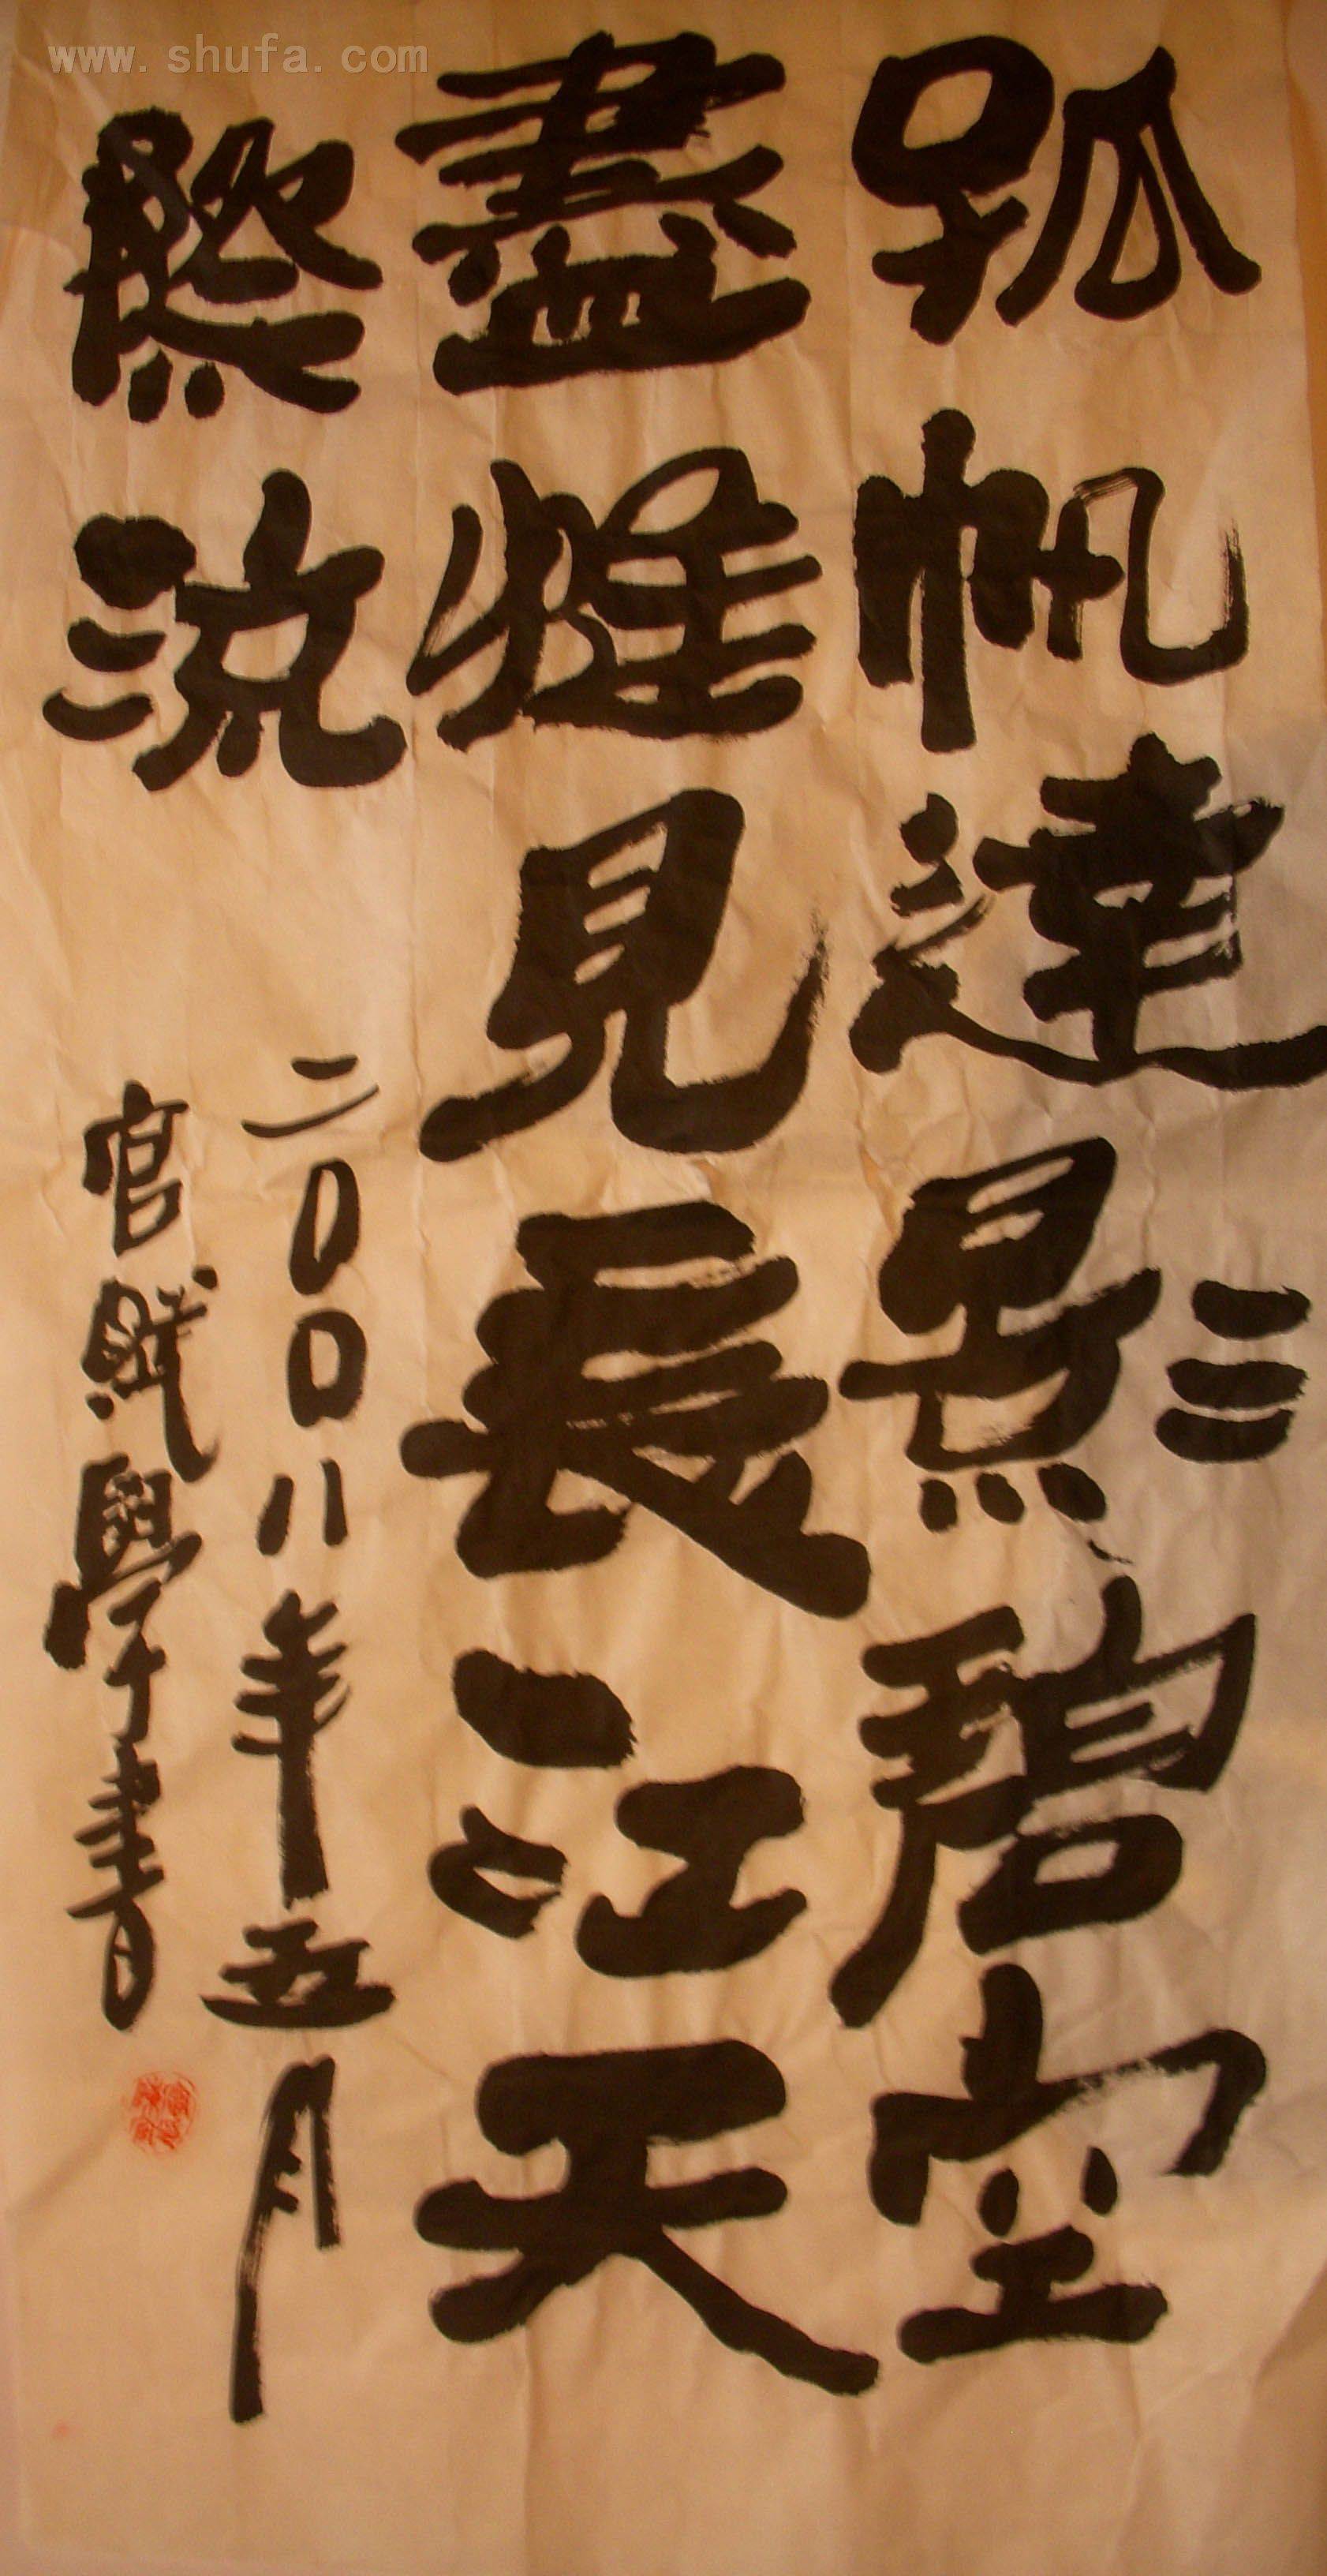 www.shufa.com
孤帆達影碧空
盡惟見長江天
際流
二〇〇八年五月
官賦學書